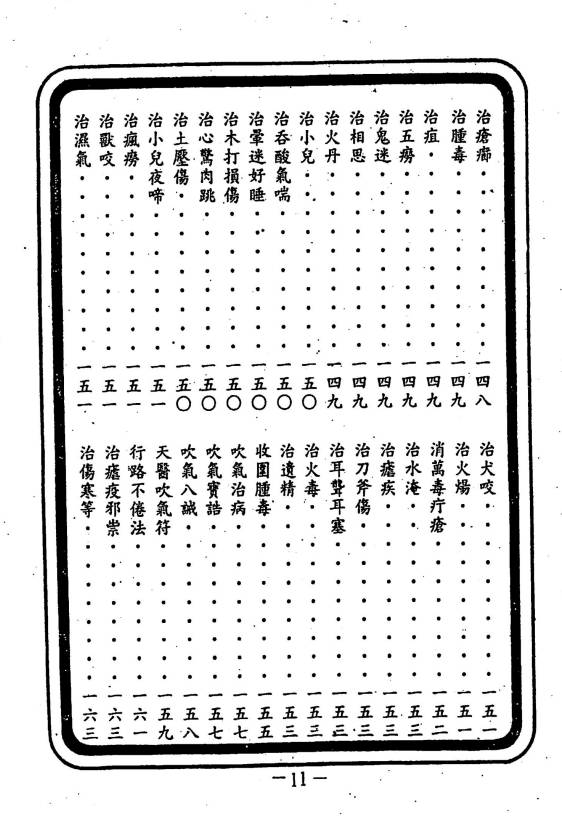 治瘡癤・・・・・・・・一四八
治腫毒・・・・・・・・一四九
治疽・・・・・・・・・一四九
治五癆・・・・・・・・一四九
治鬼迷・・・・・・・・一四九
治相思・・・・・・・・一四九
治火丹・・・・・・・・一四九
治小兒・・・・・・・・一五〇
治吞酸氣喘・・・・・・一五〇
治暈迷好睡・・・・・・一五〇
治木打損傷・・・・・・一五〇
治心驚肉跳・・・・・・一五〇
治土壓傷・・・・・・・一五〇
治小兒夜啼・・・・・・一五一
治瘋癆・・・・・・・・一五一
治獸咬・・・・・・・・一五一
治濕氣・・・・・・・・一五一
治犬咬・・・・・・・・一五一
治火煬・・・・・・・・一五一
消萬毒疔瘡・・・・・・一五二
治水淹・・・・・・・・一五三
治瘧疾・・・・・・・・一五三
治刀斧傷・・・・・・・一五三
治耳聾耳塞・・・・・・一五三
治火毒・・・・・・・・一五三
治遺精・・・・・・・・一五三
收圍腫毒・・・・・・・一五五
吹氣治病・・・・・・・一五七
吹氣寶誥・・・・・・・一五七
吹氣八誡・・・・・・・一五八
天醫吹氣符・・・・・・一五九
行路不倦法・・・・・・一六一
治瘧疫邪祟・・・・・・一六三
治傷寒等・・・・・・・一六三
－11－